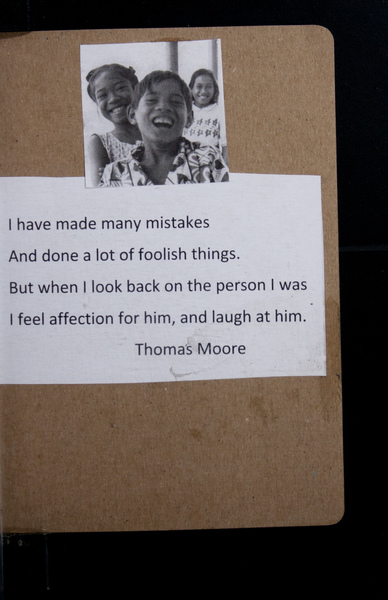 I have made many mistakes
And done a lot of foolish things.
But when I look back on the person I was
I feel affection for him, and laugh at him.
Thomas Moore